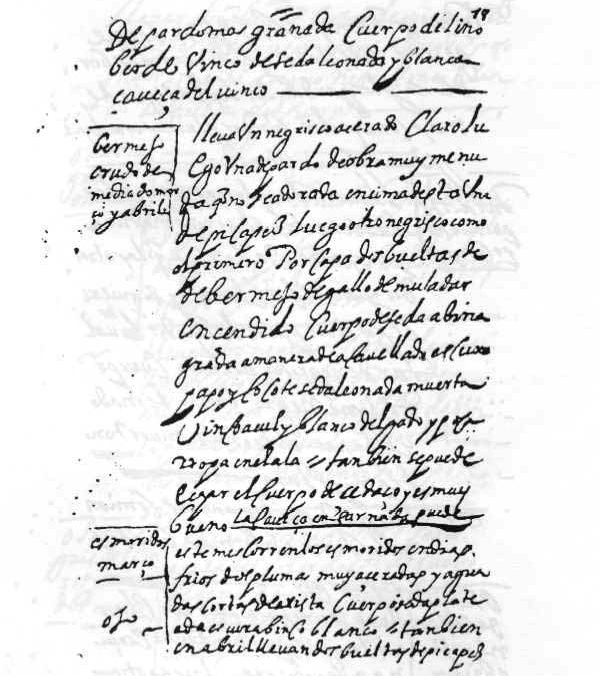 18
De pardo mas granada Cuerpo de lino
berde Vinco de seda leonada y blanca
caueça del uinco
bermejo
crudo de
mediado mar
ço y abril
lleva Un negrisco acerado Claro lu
ego Una de pardo de obra muy menu
da q no sea dorada encima desta Una
de pluma luego otro negrisco como
el primero Por capa dos bueltas de
de bermejo de gallo de muladar
encendido Cuerpo de seda abina
grada a manera de
papo y Cocote seda leonada muerta
Vinco açul y blanco delgado y
ropa en el ala tanbien se puede
Cegar el cuerpo de cedaço y es muy
bueno la puede
esmoridos
março
ojo
este mes Corren los esmoridos en dias
frios dos plumas muy aceradas y agua
das Cortas de arista Cuerpo seda plate
ada escura binco blanco tanbien
en abril lleuan dos bueltas de